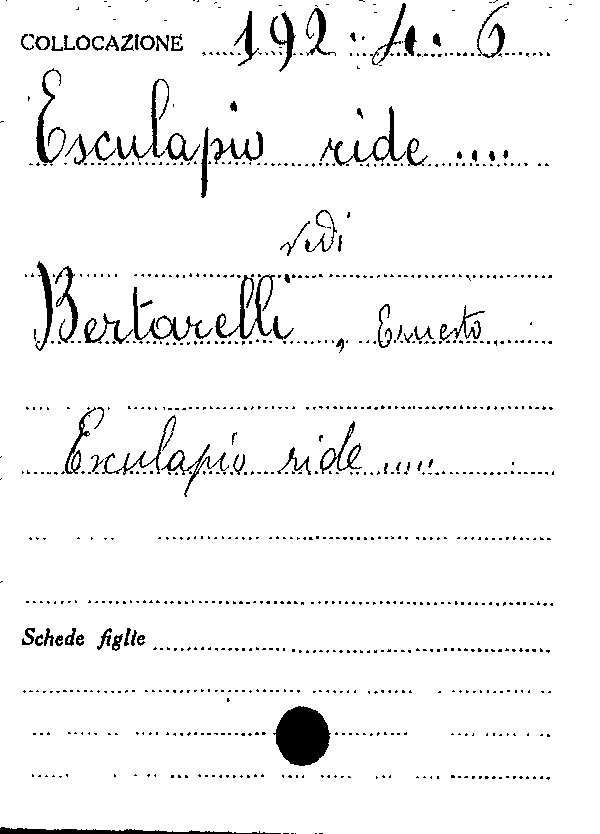 COLLOCAZIONE 192.4.6
Esculapio ride ....
vedi
Bertarelli, Ernesto
Esculapio ride .....
Schede figlie